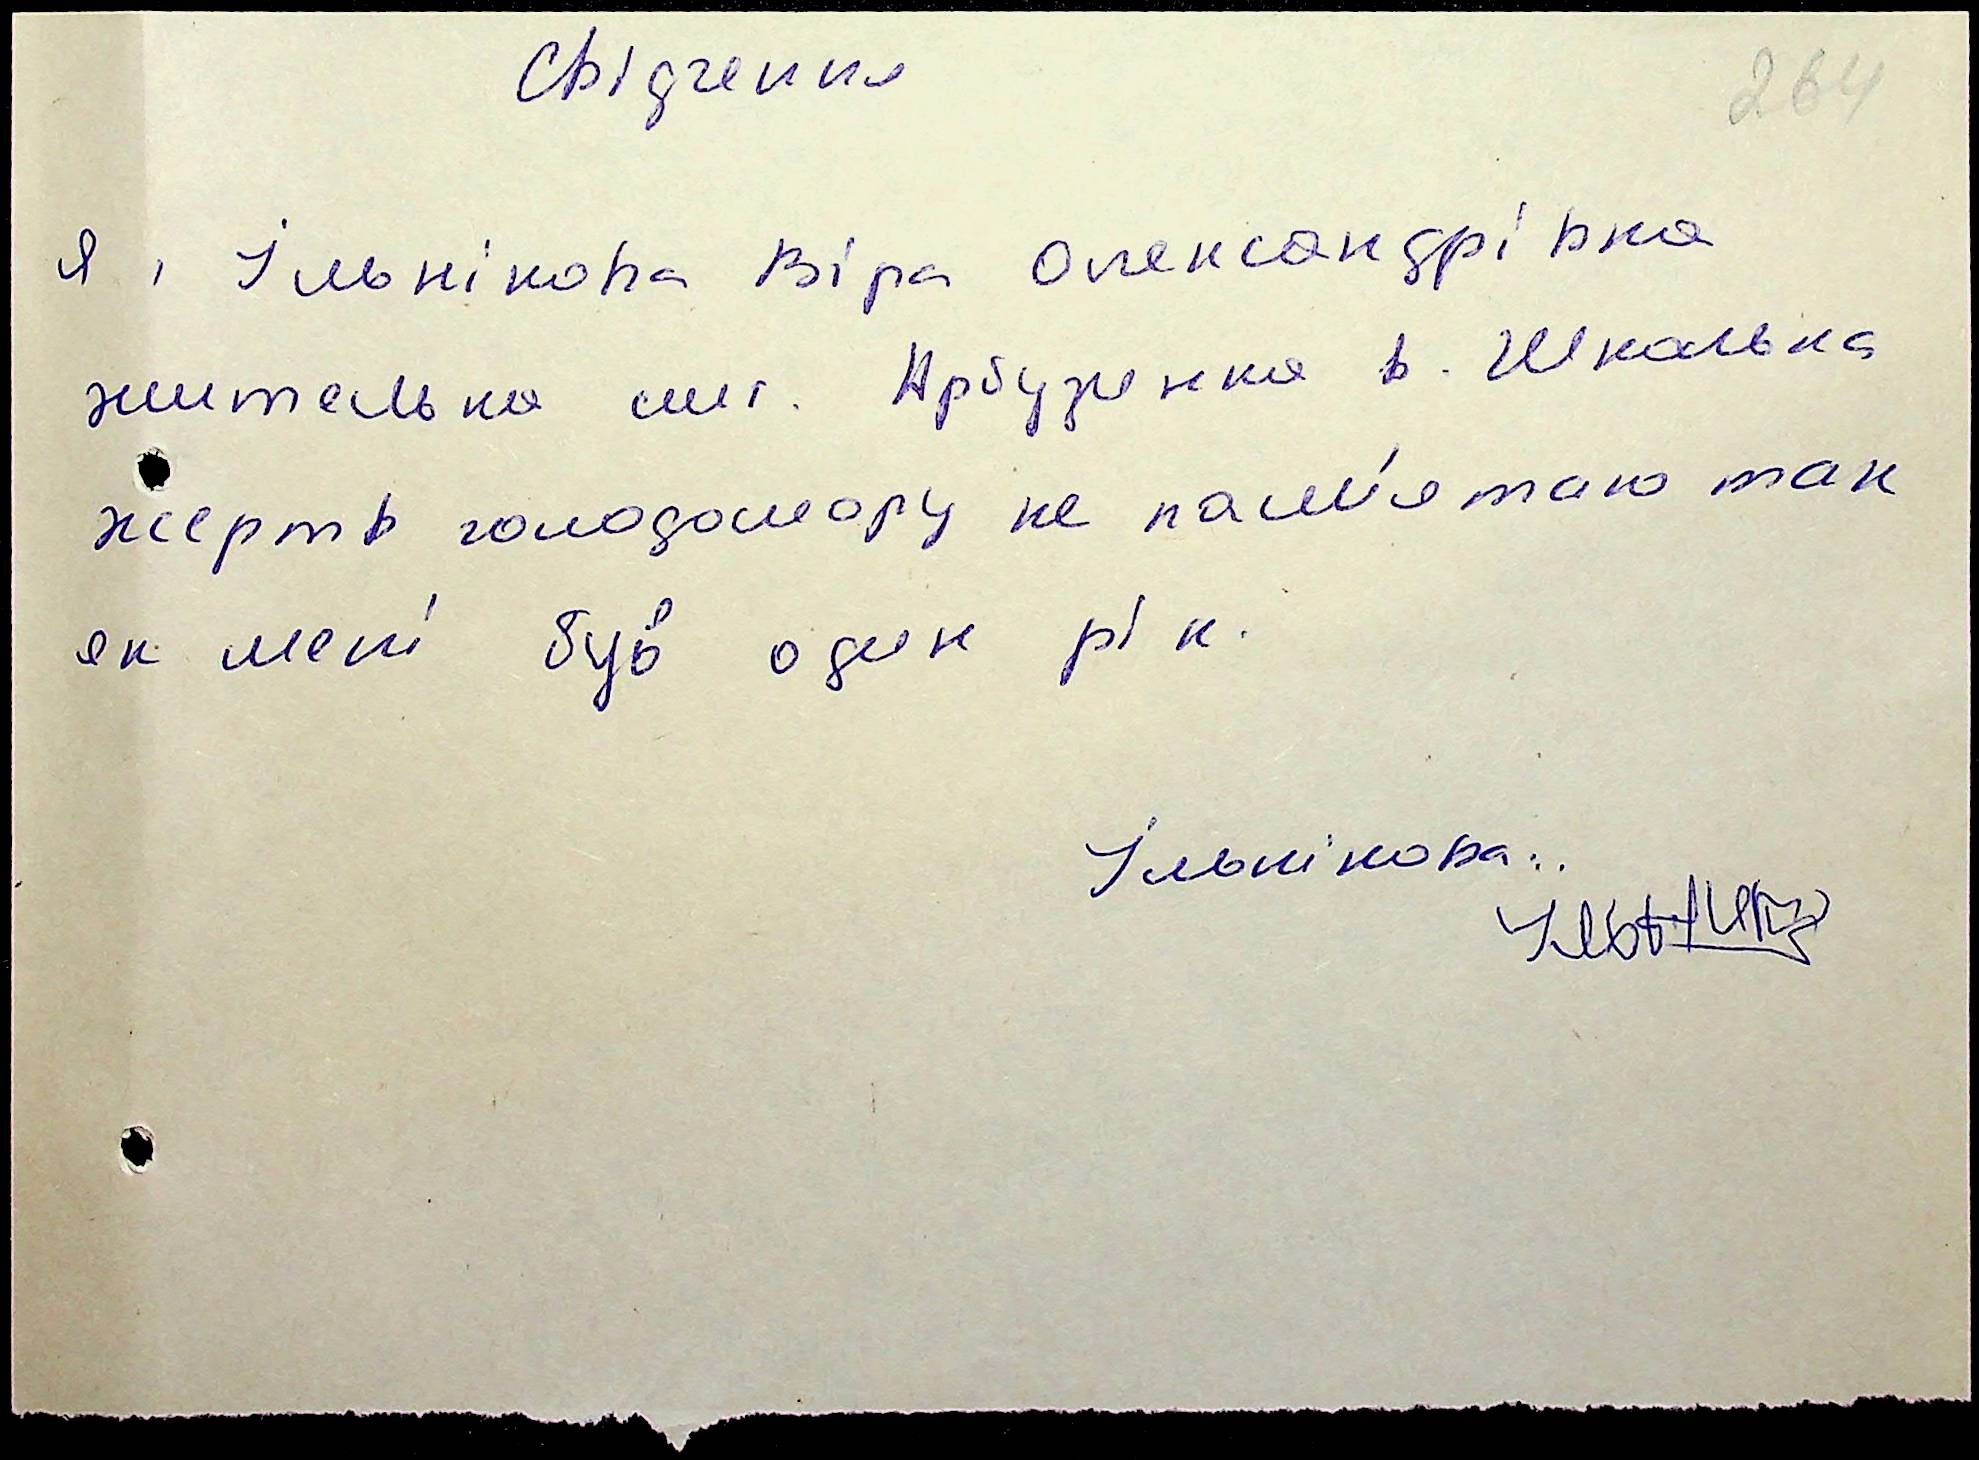 Свідчення
264
Я, Ільнікова Віра Олександрівна
жителька смт. Арбузинка в. Шкільна
жертв голодомору не пам'ятаю так
як мені був один рік.
Ільнікова..